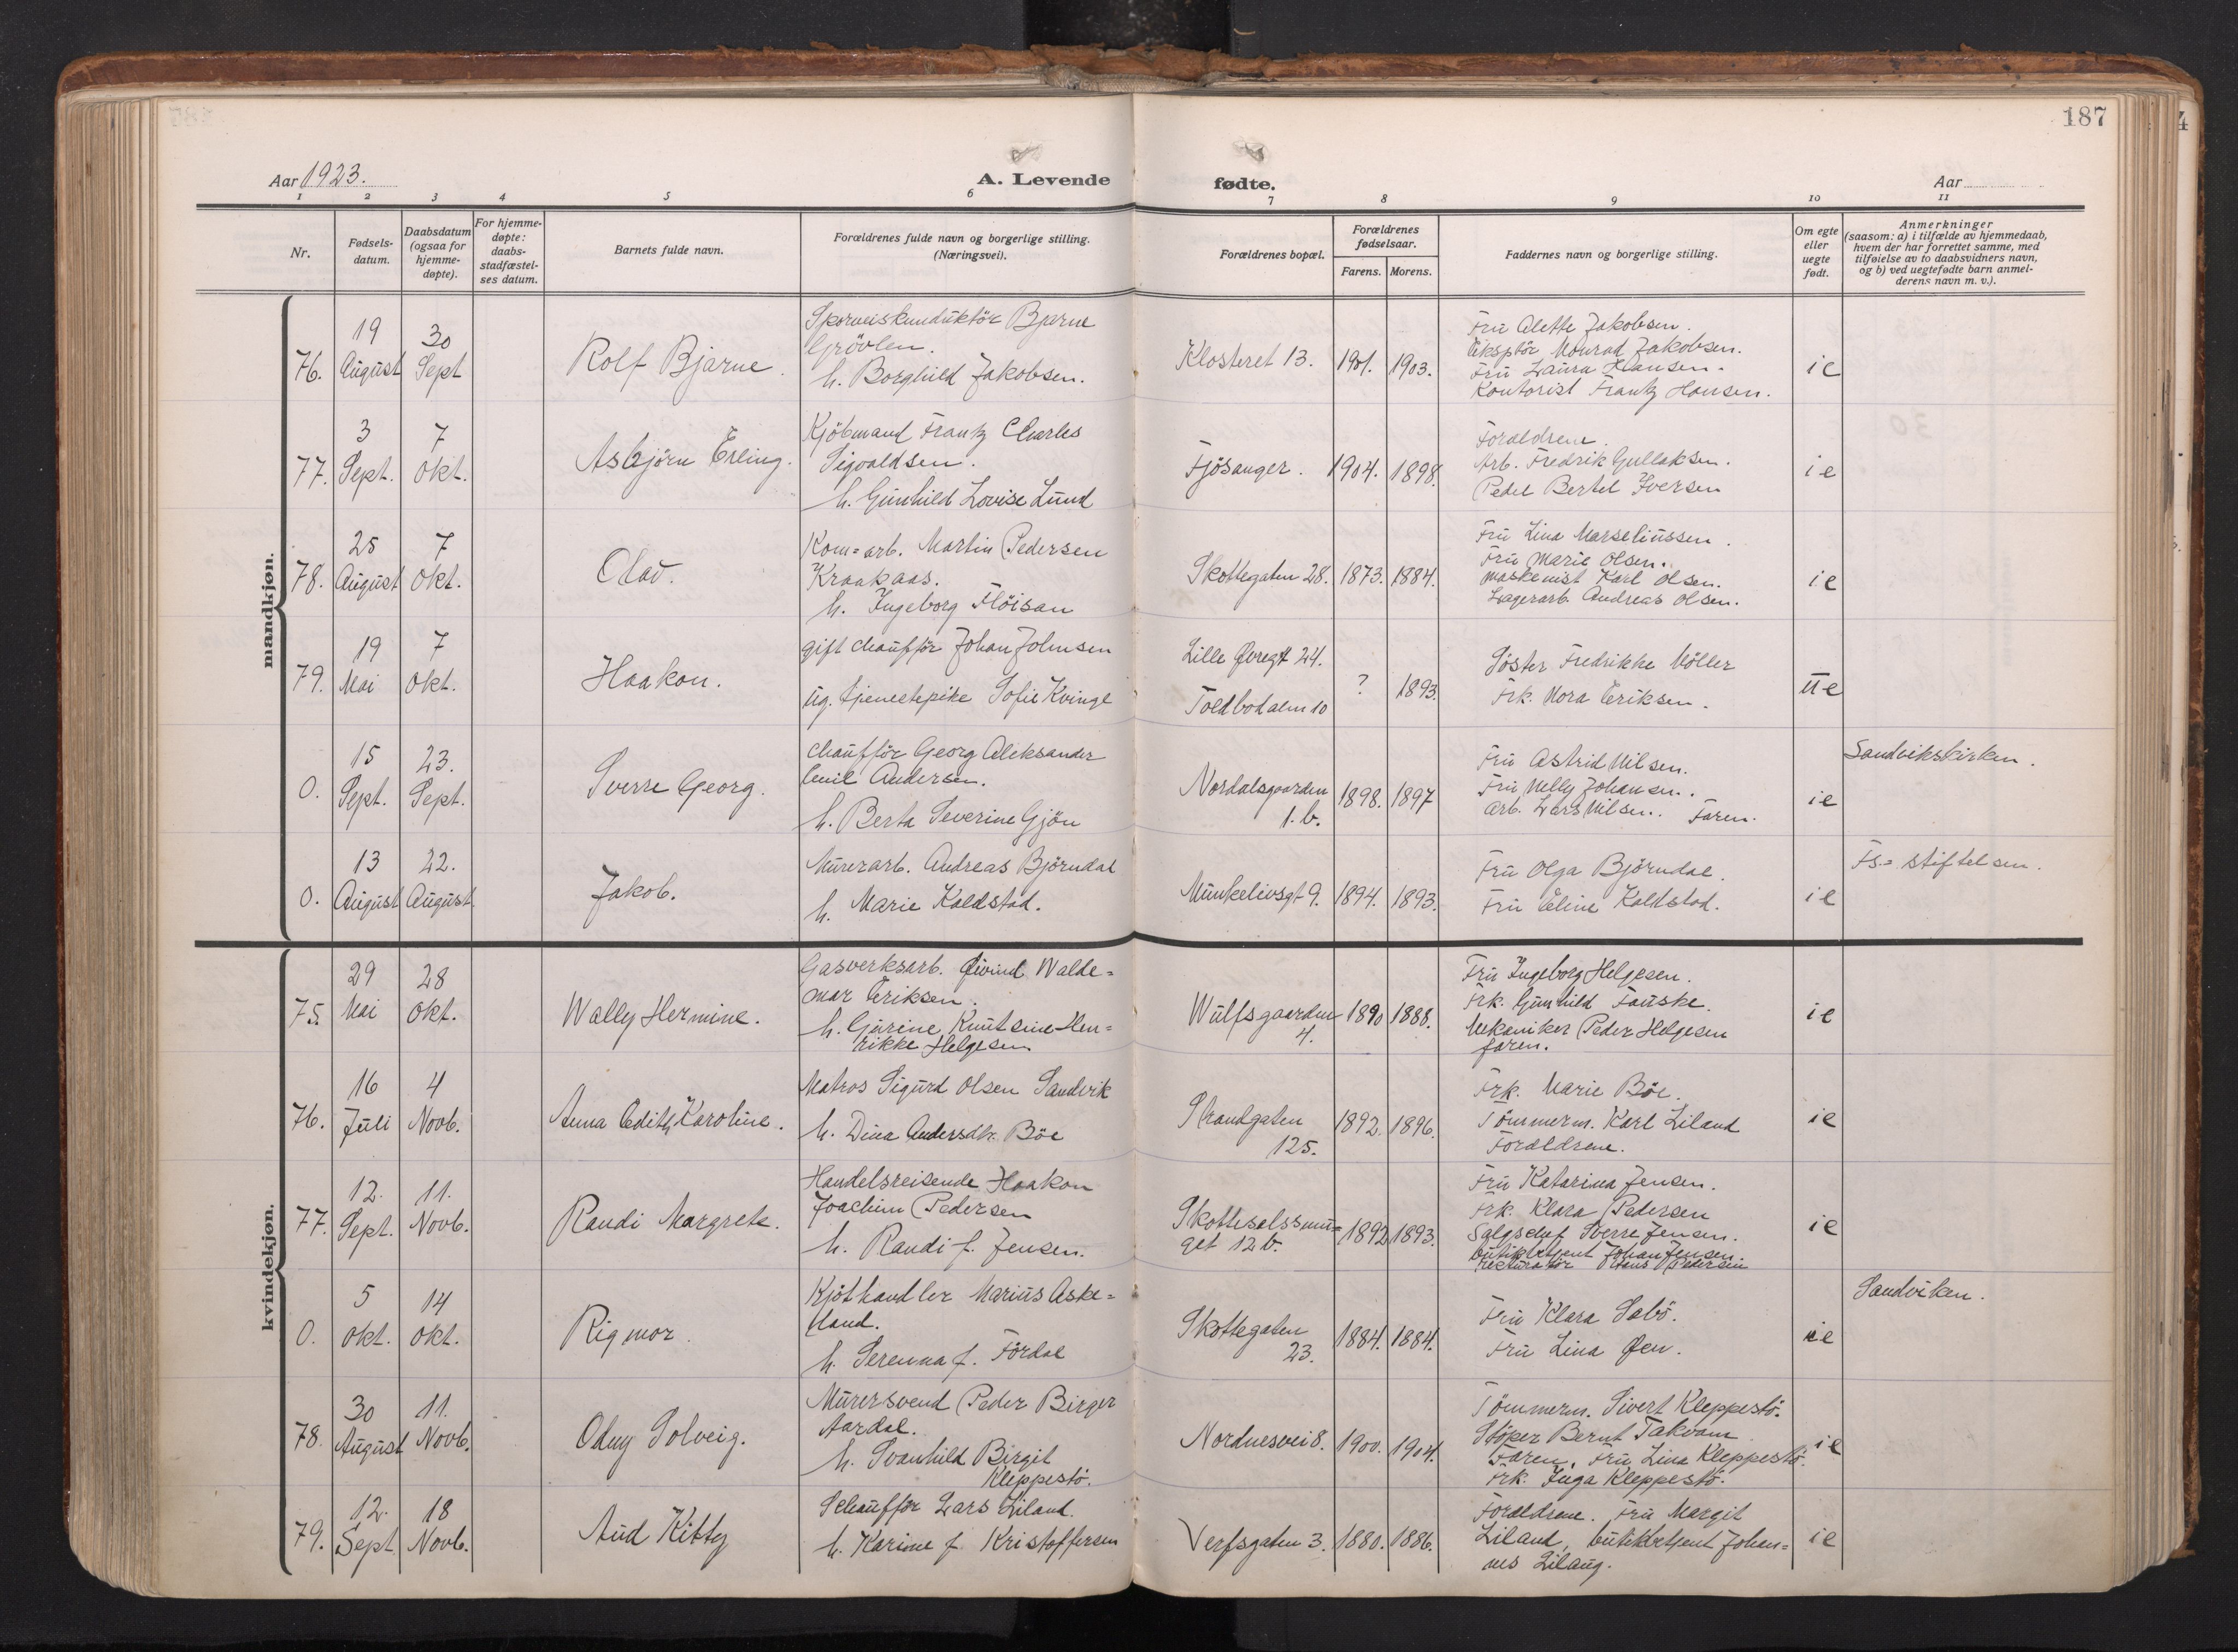 187
Aar 1923.
A. Levende fødte.
Aar
1 2 3 4 5 6 7 8 9 10 11
Nr.
Fødsels-
datum.
Daabsdatum
(ogsaa for
hjemme-
døpte).
For hjemme-
døpte:
daabs-
stadfæstel-
ses datum.
Barnets fulde navn.
Forældrenes fulde navn og borgerlige stilling.
(Næringsvei).
Forældrenes bopæl.
Forældrenes
fødselsaar.
Farens. Morens.
Faddernes navn og borgerlige stilling.
Om egte
eller
uegte
født.
Anmerkninger
(saasom: a) i tilfælde av hjemmedaab,
hvem der har forrettet samme, med
tilføielse av to daabsvidners navn,
og b) ved uegtefødte barn anmel-
derens navn m. v.).
mandkjøn.
76.
19
August
30
Sept
Rolf Bjarne.
Sporveiskunduktör Bjarne
Grövlen.
h. Borghild Jakobsen.
Klosteret 13.
1901.
1903.
Fru Alette Jakobsen.
Eksptör Monrad Jakobsen.
Fru Laura Hansen.
Kontorist Frantz Hansen.
ie
77.
3
Sept.
7
Okt.
Asbjörn Erling.
Kjöbmand Frantz Charles
Sigvaldsen.
h. Gunhild Lovise Lund
Fjösanger.
1904.
1898.
Foraldrene.
Arb. Fredrik Gullaksen.
Pedel Bertel Iversen
ie
78.
25
August
7
Okt.
Olav.
Kom=arb. Martin Pedersen
Kraakaas.
h. Ingeborg Flöisan
Skottegaten 28.
1873.
1884.
Fru Lina Marseliussen.
Fru Marie Olsen.
maskinist Karl Olsen.
Lagerarb. Andreas Olsen.
ie
79.
19
Mai
7
Okt.
Haakon.
gift chauffør Johan Johnsen
ug. tjenestepike Sofie Kvinge
Lille Øvregt 24.
Toldbodalm 10
?
1893.
Söster Fredrikke Möller
Frk. Nora Eriksen.
ue
0.
15
Sept.
23.
Sept.
Sverre Georg.
Chauffør Georg Aleksander
Emil Andersen.
h. Berta Severine Gjön
Nordalsgaarden
1. b.
1898.
1897
Fru Astrid Nilsen.
Fru Nelly Johansen.
Arb. Lars Nilsen. Faren.
ie
Sandvikskirken.
0.
13
August
22.
August.
Jakob.
Murerarb. Andreas Björndal
h. Marie Koldstad.
Munkelivsgt 9.
1894.
1893.
Fru Olga Björndal.
Fru Eline Koldstad.
ie
Fs.=stiftelsen.
kvindekjøn.
75.
29
Mai
28
Okt.
Wally Hermine.
Gasverksarb. Øivind Walde=
mar Eriksen.
h. Gurine Knutsine Hen-
rikke Helgesen
Wulfsgaarden
4.
1890
1888.
Fru Ingeborg Helgesen.
Frk. Gunhild Fauske.
Mekaniker Peder Helgesen
faren.
ie
76.
16
Juli
4
Novb.
Anna Edith Karoline.
Matros Sigurd Olsen Sandvik
h. Dina Andersdtr. Böe
Strandgaten
125.
1892.
1896.
Frk. Marie Böe.
Tömmerm. Karl Liland
Foraldrene.
ie
77.
12.
Sept.
11.
Novb.
Randi Margrete.
Handelsreisende Haakon
Joachim Pedersen
h. Randi f. Jensen.
Skottesalssmu=
get 12 b.
1892
1893.
Fru Katarina Jensen.
Frk. Klara Pedersen
Salgschef Sverre Jensen.
butikbetjent Johan Jensen.
Hans Pedersen
ie
0.
5
Okt.
14
Okt.
Rigmor.
Kjöthandler Marius Aske=
land.
h. Serenna f. Fördal
Skottegaten
23.
1884.
1884.
Fru Klara Sabö.
Fru Lina Øen.
ie
Sandviken.
78.
30
August
11.
Novb.
Odny Solveig.
Murersvend Peder Birger
Aardal.
h. Svanhild Birgit
Kleppestö.
Nordnesvei 8.
1900.
1904.
Tömmerm. Sivert Kleppestö.
Støper Bernt Takvam
Faren. Fru Lina Kleppestö.
Frk. Inga Kleppestö.
ie
79.
12.
Sept
18
Novb.
Aud Kitty
Schauffør Lars Liland.
h. Karine f. Kristoffersen
Verfsgaten 3.
1880.
1886.
Foraldrene. Fru Margit
Liland, butikbetjent Johan=
nes Lilang.
ie